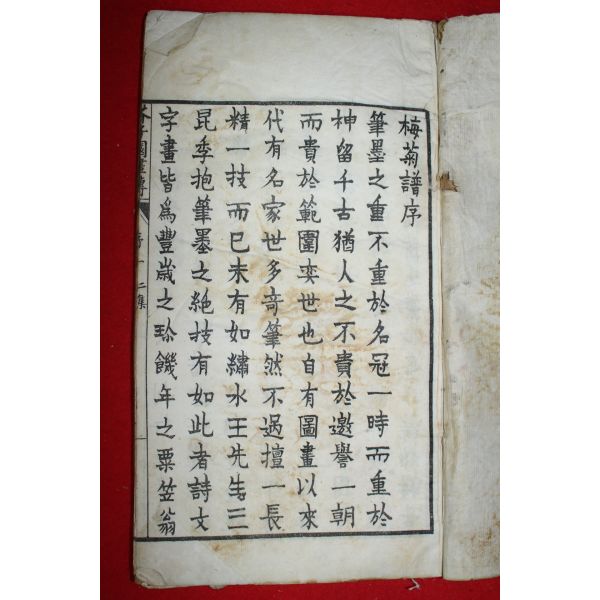 梅菊譜序
筆墨之重不重於名冠一時而重於
神留千古猶人之不貴於邀譽一朝
而貴於範圍奕世也自有圖畫以來
代有名家世多奇筆然不過擅一長
精一技而已未有如繡水王先生三
昆季抱筆墨之絶技有如此者詩文
字畫皆爲豐歲之珍饑年之粟笠翁
芥子園畫傳
序 一 二集
一